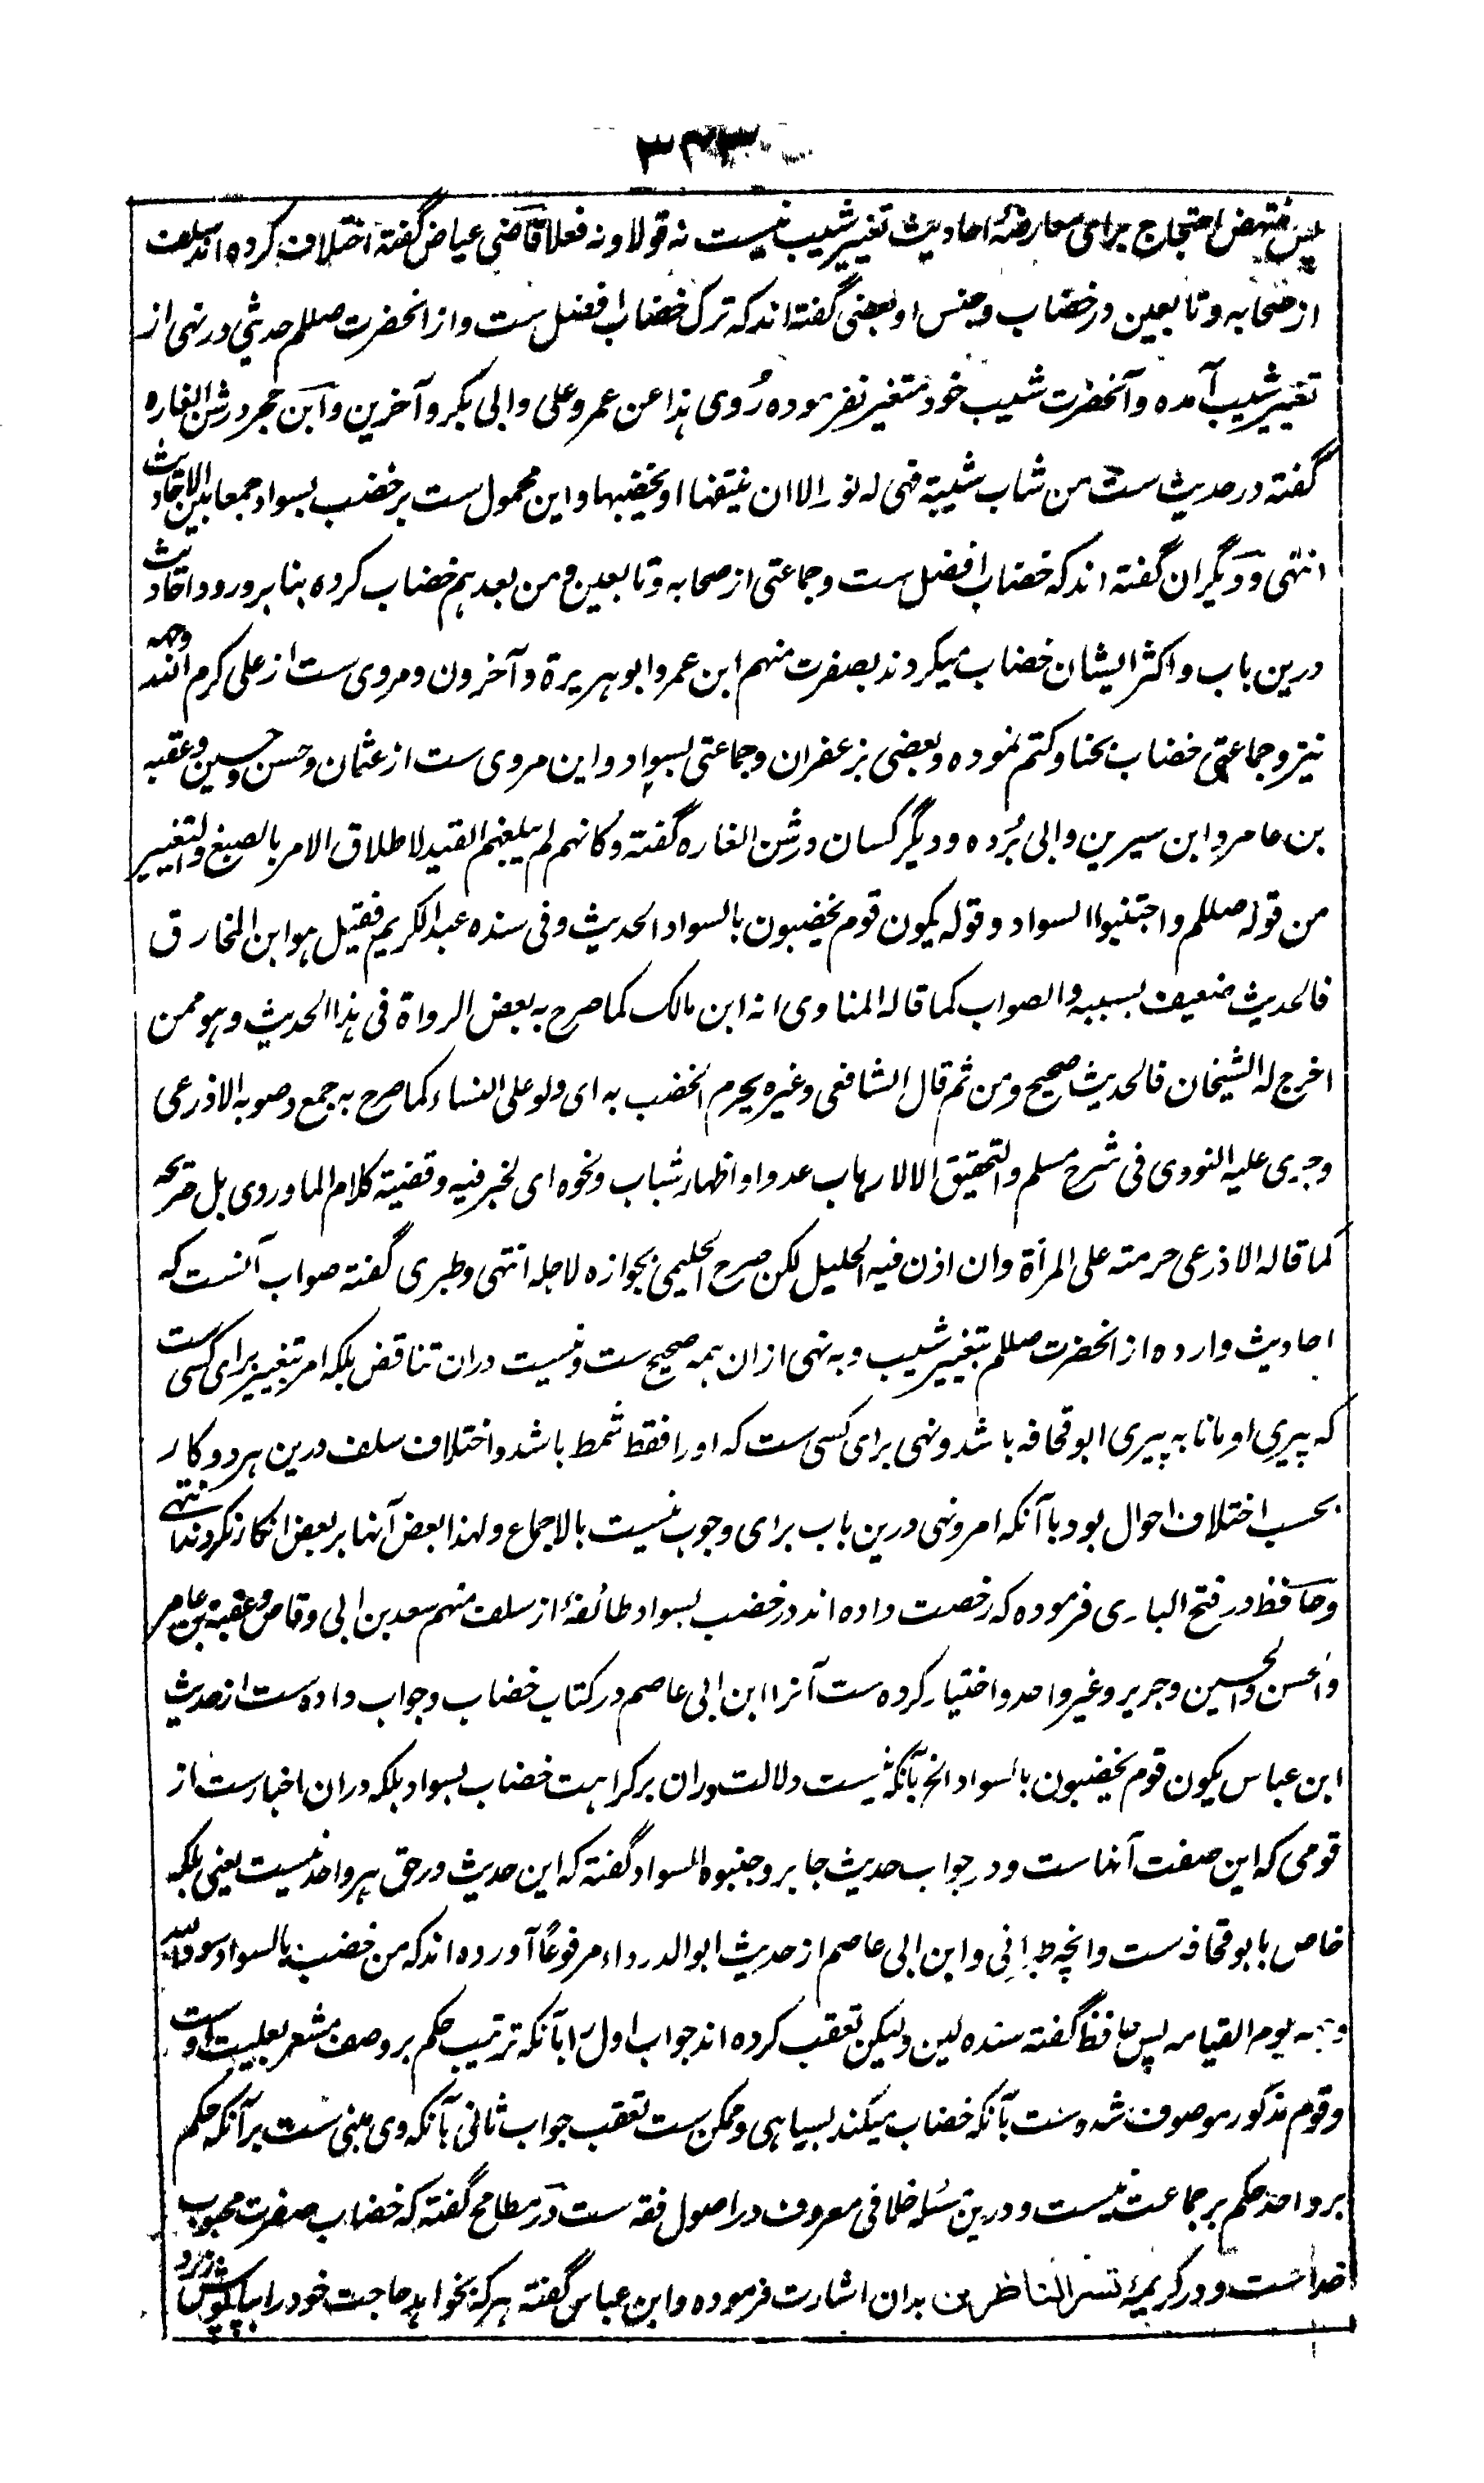 ۳۴۳
پس منتهض احتجاج برای معارضهٔ احادیث تغییر شیب نیست نه قولا و نه فعلا قاضی عیاض گفته اختلاف کرده اند سلف
از صحابه و تابعین در خضاب و جنس او بعضی گفته اند که ترک خضاب افضل ست و از انحضرت صللم حدیثی در نهی از
تغییر شیب آمده و آنحضرت شیب خود متغیر نفرموده رُوی هذا عن عمر و علی و ابی بکر و آخرین و ابن حجر در شن الغاره
گفته در حدیث ست من شاب شیبة فهی له نور الا ان ینتفها او یخضبها و این محمول ست بر خضب بسواد جمعا بین الاحادیث
انتهی و دیگران گفته اند که خضاب افضل ست و جماعتی از صحابه و تابعین و من بعد هم خضاب کرده بنا بر ورود احادیث
درین باب و اکثر ایشان خضاب میکردند بصفرت منهم ابن عمر و ابو هریرة و آخرون و مروی ست از علی کرم الله وجهه
نیز و جماعتی خضاب بحنا و کتم نموده و بعضی بزعفران و جماعتی بسواد و این مروی ست از عثمان و حسن و حسین و عقبه
بن عامر و ابن سیرین و ابی بُرده و دیگر کسان در شن الغاره گفته و کانهم لم یبلغهم القید لاطلاق الامر بالصبغ والتغییر
من قوله صللم و اجتنبوا السواد و قوله یکون قوم یخضبون بالسواد الحدیث و فی سنده عبد الکریم فقیل هو ابن المخارق
فالحدیث ضعیف بسببه والصواب کما قاله المناوی انه ابن مالک کما صرح به بعض الرواة فی هذا الحدیث و هو ممن
اخرج له الشیخان فالحدیث صحیح و من ثم قال الشافعی و غیره یحرم الخضب به ای ولو علی النساء کما صرح به جمع و صوبه الاذرعی
و جری علیه النووی فی شرح مسلم والتحقیق الا لارهاب عدو او اظهار شباب و نحوه ای لخبر فیه و قضیة کلام الماوردی بل صریحه
کما قاله الاذرعی حرمته علی المرأة وان اذن فیه الحلیل لکن صرح الحلیمی بجوازه لاجله انتهی و طبری گفته صواب آنست که
احادیث وارده از انحضرت صللم بتغییر شیب و به نهی از ان همه صحیح ست و نیست دران تناقض بلکه امر بتغییر برای کسی ست
که پیری او مانا به پیری ابو قحافه باشد و نهی برای کسی ست که او را فقط شمط باشد و اختلاف سلف درین هر دو کار
بحسب اختلاف احوال بود با آنکه امر و نهی درین باب برای وجوب نیست بالاجماع ولهذا بعض آنها بر بعض انکار نکردند انتهی
و حافظ در فتح الباری فرموده که رخصت داده اند در خضب بسواد طائفهٔ از سلف منهم سعد بن ابی وقاص و عقبة بن عامر
والحسن والحسین و جریر و غیر واحد و اختیار کرده ست آنرا ابن ابی عاصم در کتاب خضاب و جواب داده ست از حدیث
ابن عباس یکون قوم یخضبون بالسواد الخ بآنکه نیست دلالت دران بر کراهت خضاب بسواد بلکه دران اخبارست از
قومی که این صفت آنهاست و در جواب حدیث جابر و جنبوه السواد گفته که این حدیث در حق هر واحد نیست یعنی بلکه
خاص بابو قحافه ست و انچه طبرانی و ابن ابی عاصم از حدیث ابو الدرداء مرفوعاً آورده اند که من خضب بالسواد سود الله
وجهه یوم القیامه پس حافظ گفته سنده لین ولیکن تعقب کرده اند جواب اول را بآنکه ترتیب حکم بر وصف مشعر بعلیت اوست
و قوم مذکور موصوف شده ست بآنکه خضاب میکنند بسیاهی و ممکن ست تعقب جواب ثانی بآنکه وی مبنی ست بر آنکه حکم
بر واحد حکم بر جماعت نیست و درین مسئله خلافی معروف در اصول فقه ست در مطامح گفته که خضاب صفرت محبوب
خداست و در کریمهٔ تسر الناظرین بدان اشارت فرموده و ابن عباس گفته هر که بخواهد حاجت خود را بپاپوش زرد